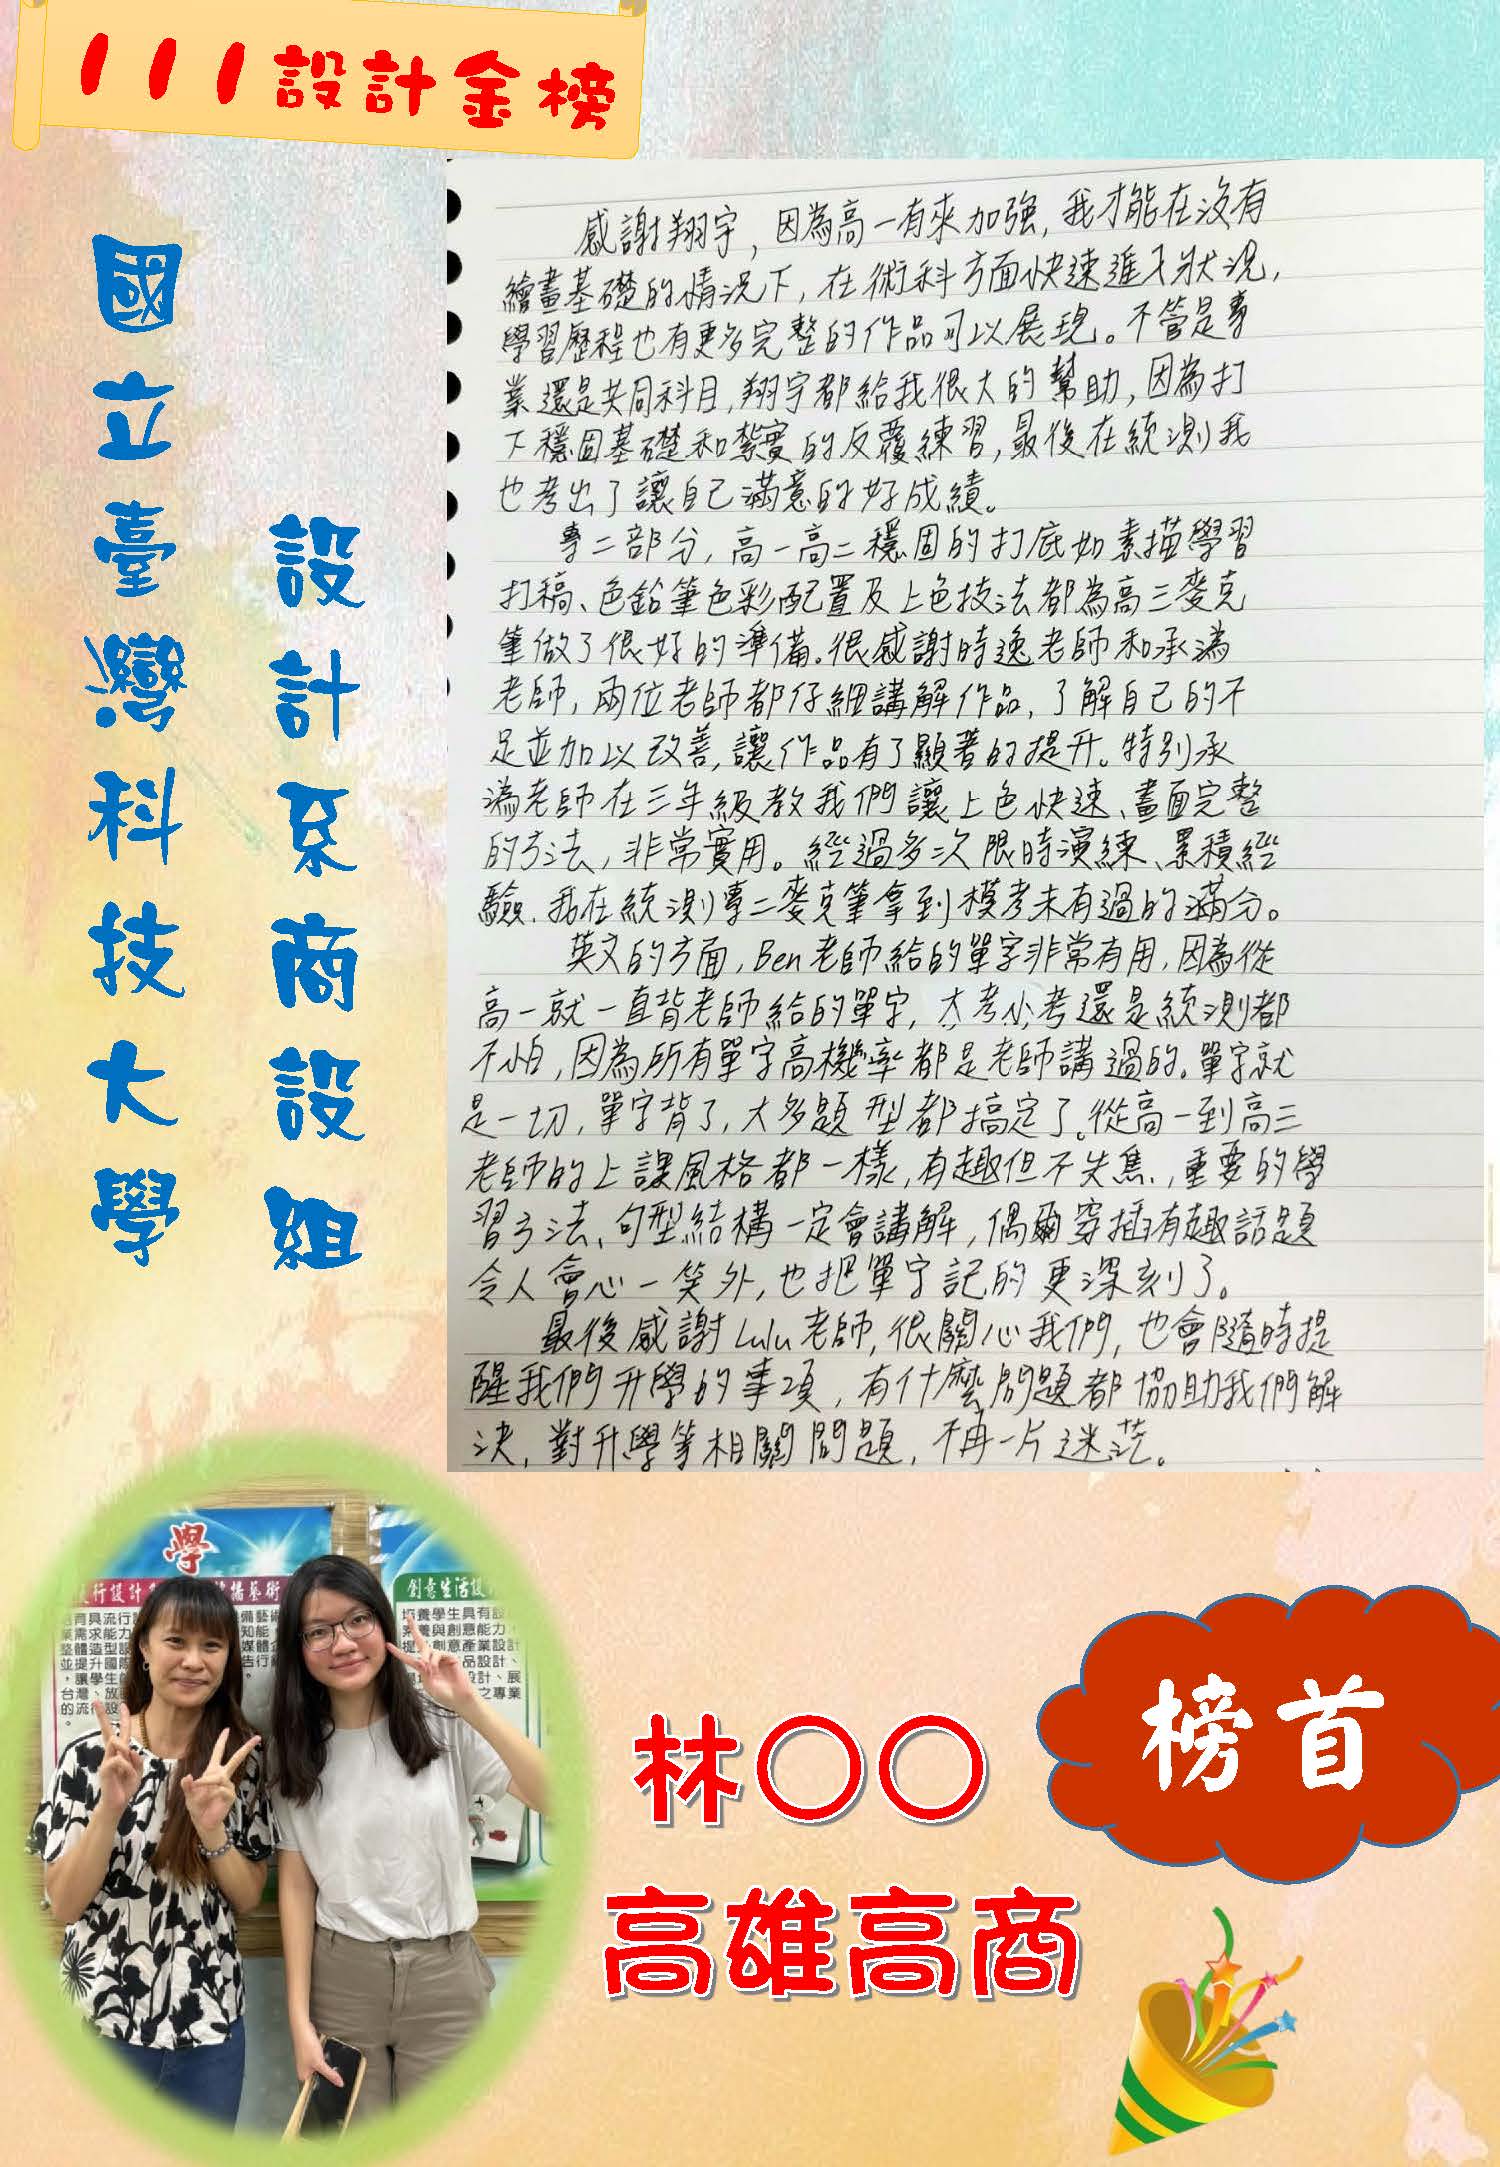 111設計金榜
國立臺灣科技大學
設計系商設組
感謝翔宇，因為高一有來加強，我才能在沒有
繪畫基礎的情況下，在術科方面快速進入狀況，
學習歷程也有更多完整的作品可以展現。不管是專
業還是共同科目，翔宇都給我很大的幫助，因為打
下穩固基礎和紮實的反覆練習，最後在統測我
也考出了讓自己滿意的好成績。
專二部分，高一高二穩固的打底如素描學習
打稿、色鉛筆色彩配置及上色技法都為高三麥克
筆做了很好的準備。很感謝時逸老師和承溈
老師，兩位老師都仔細講解作品，了解自己的不
足並加以改善，讓作品有了顯著的提升。特別承
溈老師在三年級教我們讓上色快速、畫面完整
的方法，非常實用。經過多次限時演練、累積經
驗，我在統測專二麥克筆拿到模考未有過的滿分。
英文的方面，Ben老師給的單字非常有用，因為從
高一就一直背老師給的單字，大考小考還是統測都
不怕，因為所有單字高機率都是老師講過的。單字就
是一切，單字背了，大多題型都搞定了。從高一到高三
老師的上課風格都一樣，有趣但不失焦，重要的學
習方法、句型結構一定會講解，偶爾穿插有趣話題
令人會心一笑外，也把單字記的更深刻了。
最後感謝Lulu老師，很關心我們，也會隨時提
醒我們升學的事項，有什麼問題都協助我們解
決，對升學等相關問題，不再一片迷茫。
學
行設計
播藝術
創意生活設
培養學生具有設
素養與創意能力，
創意產業設計
品設計、
設計、展
之專業
育具流行
業需求能力
整體造型設
並提升國際
，讓學生
台灣、放
的流行設
。
備藝術
知能，
媒體
告行
林〇〇
高雄高商
榜首